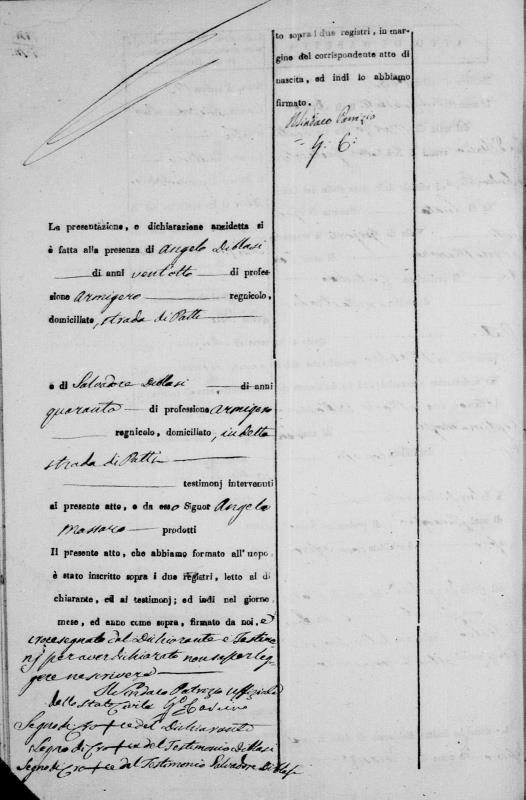 La presentazione, e dichiarazione anzidetta si
è fatta alla presenza di Angelo Diblasi
di anni ventotto di profes-
sione Armigero regnicolo,
domiciliato, strada di Patti
e di Salvadore Diblasi di anni
quaranta di professione armigero
regnicolo, domiciliato, in detta
strada di Patti
testimonj intervenuti
al presente atto, e da esso Signor Angelo
prodotti
Il presente atto, che abbiamo formato all'uopo,
è stato inscritto sopra i due registri, letto al di
chiarante, ed ai testimonj; ed indi nel giorno,
mese, ed anno come sopra, firmato da noi, e
crocesegnato dal Dichiarante e Testimo
nj per aver dichiarato non saper leg
gere ne scrivere
Il Sindaco Patrizio Uffiziale
dello Stato Civile
Segno di Cro+ce del Dichiarante
Segno di Cro+ce del Testimonio Diblasi
Segno di Cro+ce del Testimonio Salvadore Diblasi
to sopra i due registri, in mar-
gine del corrispondente atto di
nascita, ed indi lo abbiamo
firmato.
Il Sindaco Patrizio